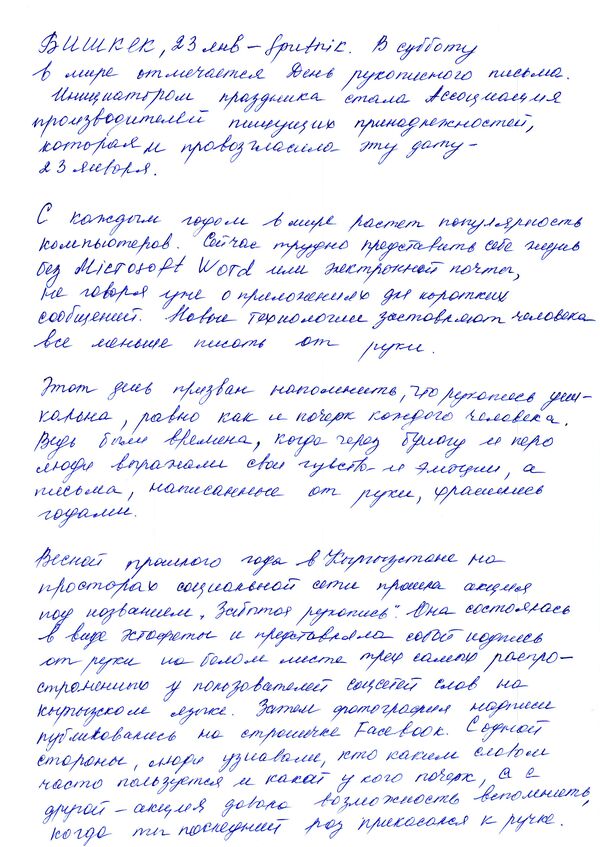 БИШКЕК, 23 янв – Sputnik. В субботу
в мире отмечается День рукописного письма.
Инициатором праздника стала Ассоциация
производителей пишущих принадлежностей,
которая и провозгласила эту дату –
23 января.
С каждым годом в мире растет популярность
компьютеров. Сейчас трудно представить себе жизнь
без Microsoft Word или электронной почты,
не говоря уже о приложениях для коротких
сообщений. Новые технологии заставляют человека
все меньше писать от руки.
Этот день призван напомнить, что рукопись уни-
кальна, равно как и почерк каждого человека.
Ведь были времена, когда через бумагу и перо
люди выражали свои чувства и эмоции, а
письма, написанные от руки, хранились
годами.
Весной прошлого года в Кыргызстане на
просторах социальной сети прошла акция
под названием „Забытая рукопись“. Она состоялась
в виде эстафеты и представляла собой подпись
от руки на белом листе трех самых распро-
страненных у пользователей соцсетей слов на
кыргызском языке. Затем фотография надписи
публиковались на страничке Facebook. С одной
стороны, люди узнавали, кто каким словом
часто пользуется и какой у кого почерк, а с
другой – акция давала возможность вспомнить,
когда ты последний раз прикасался к ручке.